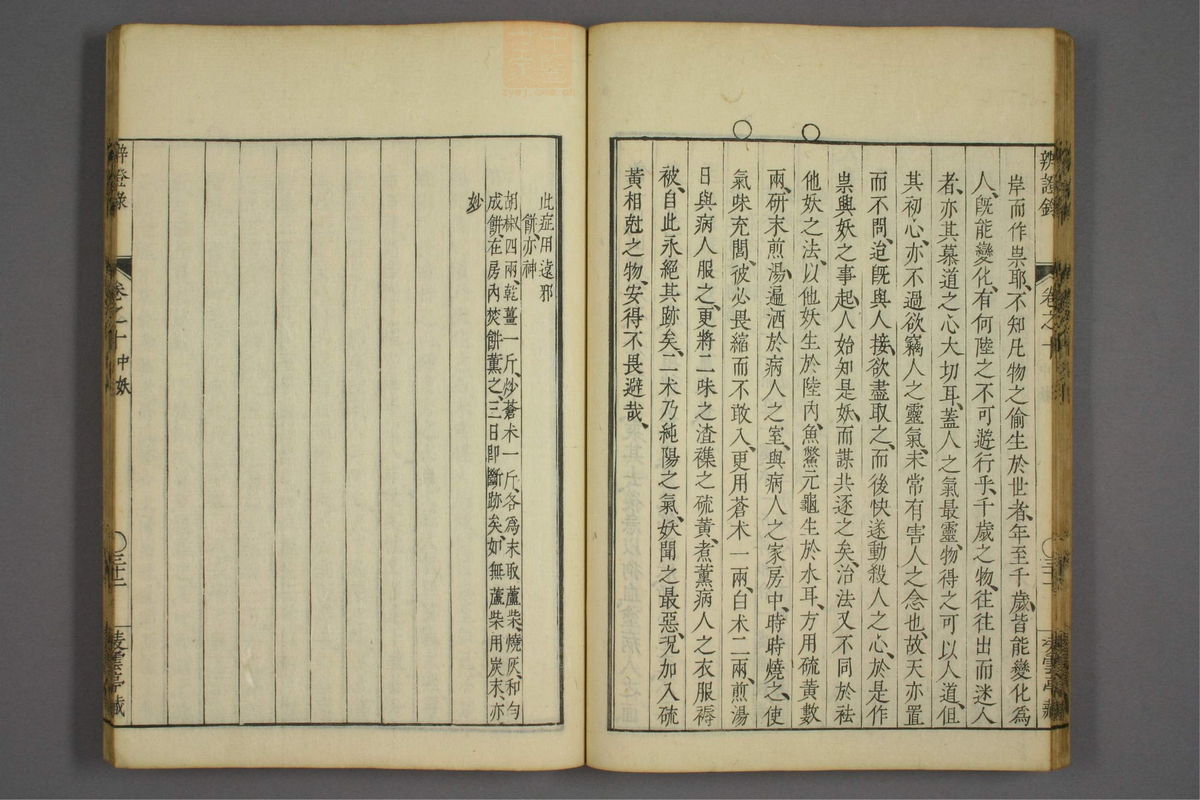 辨證錄 卷之十
岸而作祟耶、不知凡物之偷生於世者、年至千歲、皆能變化爲
人、旣能變化、有何陸之不可遊行乎、千歲之物、往往出而迷人
者、亦其慕道之心大切耳、蓋人之氣最靈、物得之可以人道、但
其初心、亦不過欲竊人之靈氣、未常有害人之念也、故天亦置
而不問、迨旣與人接、欲盡取之、而後快、遂動殺人之心、於是作
祟興妖之事起、人始知是妖、而謀共逐之矣、治法又不同於祛
他妖之法、以他妖生於陸內、魚鱉元龜生於水耳、方用硫黃數
兩、研末煎湯、遍洒於病人之室、與病人之家房中、時時燒之、使
氣味充閭、彼必畏縮而不敢入、更用蒼朮一兩、白朮二兩、煎湯
日與病人服之、更將二味之渣襍之硫黃、煮薰病人之衣服褥
被、自此永絕其跡矣、二朮乃純陽之氣、妖聞之最惡、況加入硫
黃相尅之物、安得不畏避哉、
此症用遠邪
餅、亦神
胡椒四兩、乾薑一斤、炒蒼朮一斤、各爲末、取蘆柴、燒灰、和勻
成餅、在房內焚餅薰之、三日卽斷跡矣、如無蘆柴用炭末、亦
妙
辨證錄 卷之十 中妖 三十二 凌雲亭藏